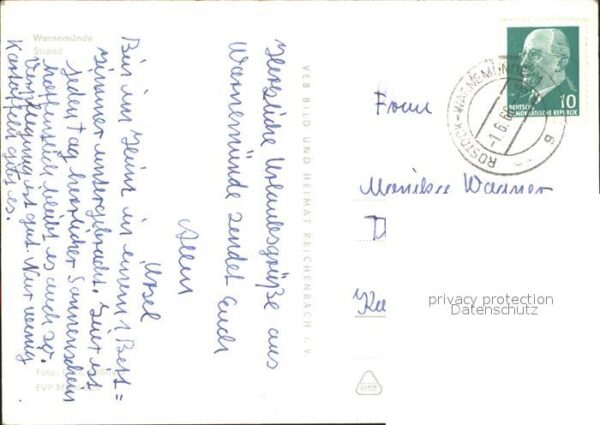 Warnemünde
Strand
Herzliche Urlaubsgrüße aus
Warnemünde sendet Euch
Allen
Ursel
Bin im Heim in einem 1 Bett=
zimmer untergebracht. Hier ist
jeden Tag herrlicher Sonnenschein
hoffentlich bleibt es auch so.
Verpflegung ist gut. Nur wenig
Kartoffeln gibt es.
Foto
EVP M
VEB BILD UND HEIMAT REICHENBACH I. V.
DEUTSCHE
DEMOKRATISCHE REPUBLIK
10
ROSTOCK-WARNEMÜNDE
-1.6.6
9
Frau
Monika Wagner
D
privacy protection
Datenschutz